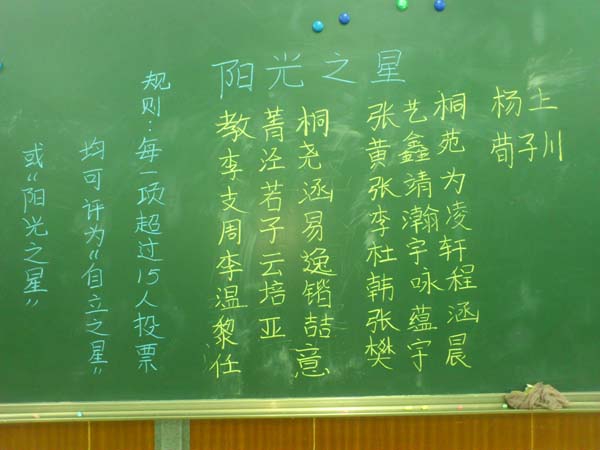 阳光之星
规则：每一项超过15人投票
均可评为“自立之星”
或“阳光之星”
教菁桐
李泾尧
支若涵
周子易
李云逸
温培锴
黎亚喆
任意
张艺桐
黄鑫苑
张靖为
李瀚凌
杜宇轩
韩咏程
张蕴涵
樊宇晨
杨士
荀子川